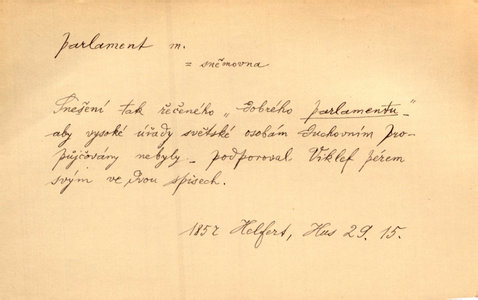 parlament m.
= sněmovna
Snešení tak řečeného „dobrého parlamentu" –
aby vysoké úřady světské osobám duchovním pro-
půjčovány nebyly – podporoval Viklef pérem
svým ve dvou spisech.
1857 Helfert, Hus 29. 15.